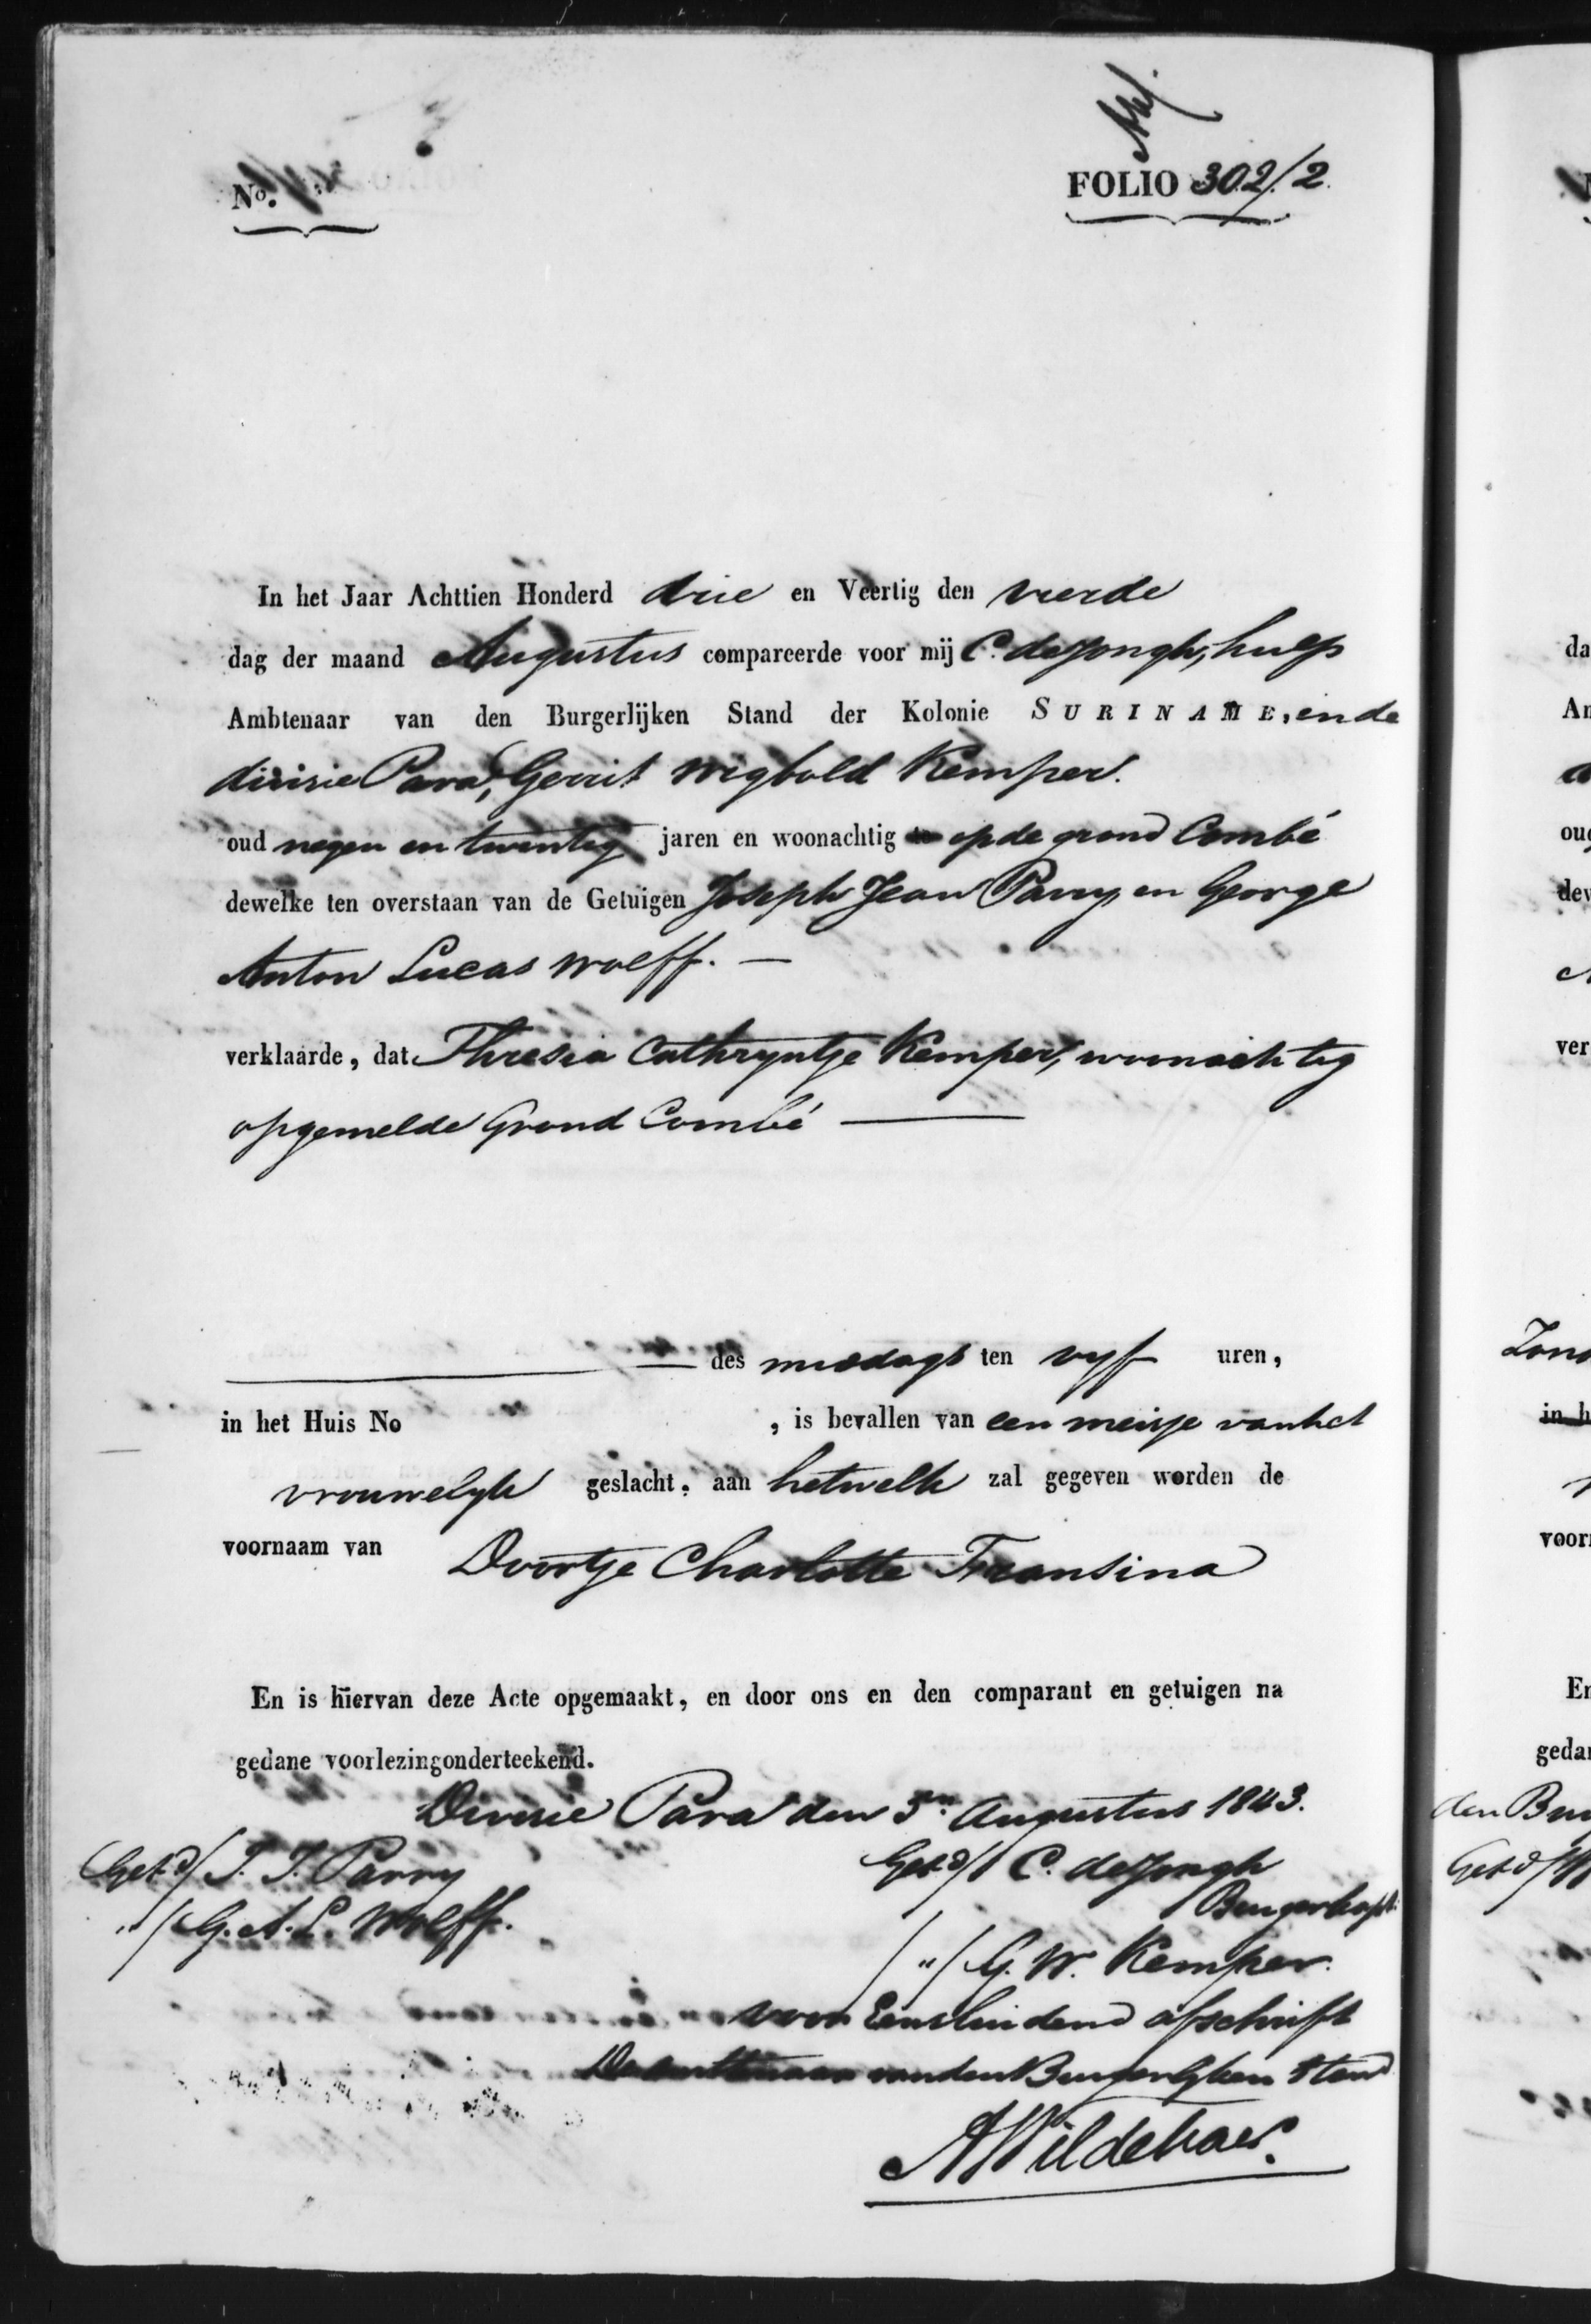 FOLIO 302/2.
No.
In het Jaar Achttien Honderd drie en Veertig den vierde
dag der maand Augustus compareerde voor mij C. de Jongh, hulp
Ambtenaar van den Burgerlijken Stand der Kolonie SURINAME, in de
divisie Para, Gerrit Wigbold Kemper.
oud negen en twintig jaren en woonachtig op de grond Combé
dewelke ten overstaan van de Getuigen Joseph Jean Parry en George
Anton Lucas Wolff. —
verklaarde, dat Thresia Cathryntje Kemper, woonachtig
op gemelde Grond Combé —
des middags ten vyf uren,
in het Huis No , is bevallen van een meisje van het
vrouwelyk geslacht, aan hetwelk zal gegeven worden de
voornaam van Doortje Charlotte Fransina
En is hiervan deze Acte opgemaakt, en door ons en den comparant en getuigen na
gedane voorlezing onderteekend.
Divisie Para den 5en Augustus 1843.
Getd/ J. J. Parry
"/ G. A. L. Wolff.
Getd/ C. de Jongh
Burgerkapt.
/"/ G. W. Kemper.
voor Eensluidend afschrift
De Ambtenaar van den Burgerlyken Stand
A Wildeboer.
da
An
oud
dew
ver
in h
voorn
En
gedan
den Bur
Getd/